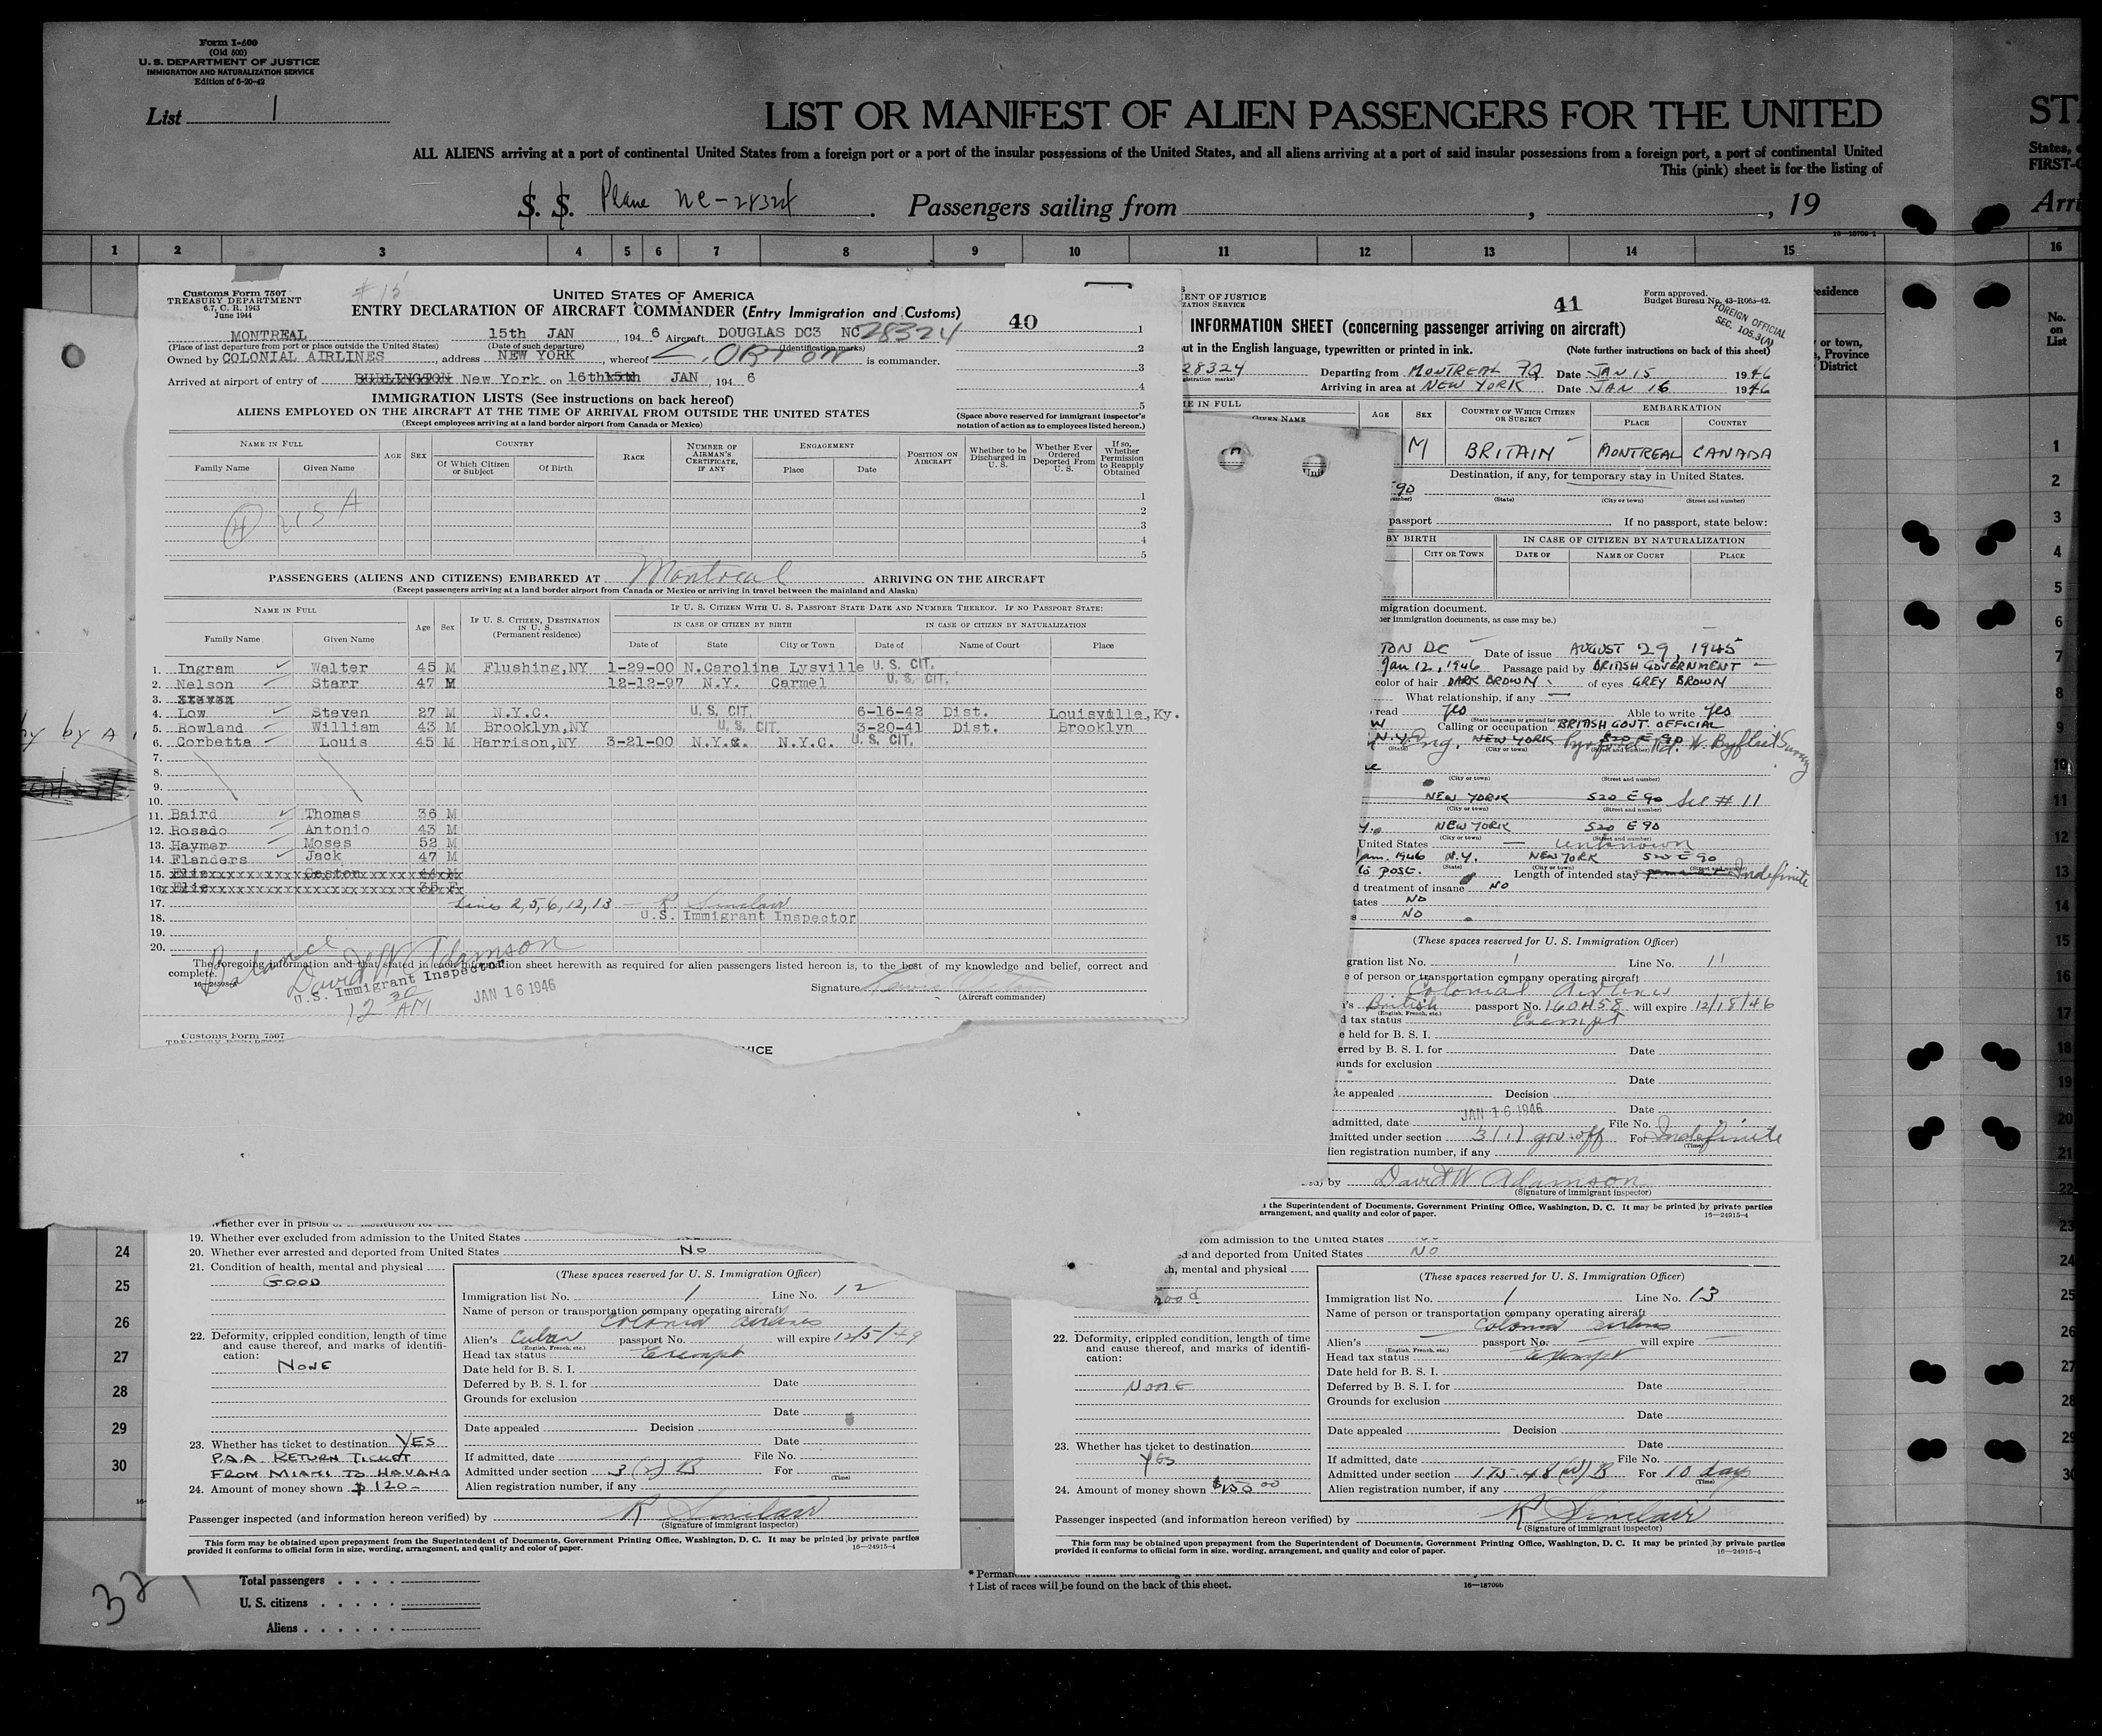 Form I-600
(Old 500)
U. S. DEPARTMENT OF JUSTICE
IMMIGRATION AND NATURALIZATION SERVICE
Edition of 6-20-42
List 1
LIST OR MANIFEST OF ALIEN PASSENGERS FOR THE UNITED
ALL ALIENS arriving at a port of continental United States from a foreign port or a port of the insular possessions of the United States, and all aliens arriving at a port of said insular possessions from a foreign port, a port of continental United
This (pink) sheet is for the listing of
S. S. Plane NC-28324 . Passengers sailing from , , 19
16—18709-1
1 2 3 4 5 6 7 8 9 10 11 12 13 14 15 16
Customs Form 7507
TREASURY DEPARTMENT
6.7, C. R. 1943
June 1944
UNITED STATES OF AMERICA
ENTRY DECLARATION OF AIRCRAFT COMMANDER (Entry Immigration and Customs)
40
MONTREAL 15th JAN , 194 6 Aircraft DOUGLAS DC3 NC 28324
(Place of last departure from port or place outside the United States) (Date of such departure) (Identification marks)
Owned by COLONIAL AIRLINES , address NEW YORK , whereof ORTON is commander.
Arrived at airport of entry of BURLINGTON New York on 16th 15th JAN , 194 6
IMMIGRATION LISTS (See instructions on back hereof)
ALIENS EMPLOYED ON THE AIRCRAFT AT THE TIME OF ARRIVAL FROM OUTSIDE THE UNITED STATES
(Except employees arriving at a land border airport from Canada or Mexico)
(Space above reserved for immigrant inspector's
notation of action as to employees listed hereon.)
NAME IN FULL
Family Name Given Name
AGE SEX
COUNTRY
Of Which Citizen or Subject Of Birth
RACE
NUMBER OF AIRMAN'S CERTIFICATE, IF ANY
ENGAGEMENT
Place Date
POSITION ON AIRCRAFT
Whether to be Discharged in U. S.
Whether Ever Ordered Deported From U. S.
If so, Whether Permission to Reapply Obtained
(4) USA
PASSENGERS (ALIENS AND CITIZENS) EMBARKED AT Montreal ARRIVING ON THE AIRCRAFT
(Except passengers arriving at a land border airport from Canada or Mexico or arriving in travel between the mainland and Alaska)
NAME IN FULL
Family Name Given Name
Age Sex
IF U. S. CITIZEN, DESTINATION IN U. S. (Permanent residence)
IF U. S. CITIZEN WITH U. S. PASSPORT STATE DATE AND NUMBER THEREOF. IF NO PASSPORT STATE:
IN CASE OF CITIZEN BY BIRTH IN CASE OF CITIZEN BY NATURALIZATION
Date of State City or Town Date of Name of Court Place
1. Ingram Walter 45 M Flushing,NY 1-29-00 N.Carolina Lysville U. S. CIT.
2. Nelson Starr 47 M 12-12-97 N.Y. Carmel U. S. CIT.
3. Steven
4. Low Steven 27 M N.Y.C. U. S. CIT. 6-16-42 Dist. Louisville,Ky.
5. Rowland William 43 M Brooklyn,NY U. S. CIT. 3-20-41 Dist. Brooklyn
6. Corbetta Louis 45 M Harrison,NY 3-21-00 N.Y. N.Y.C. U. S. CIT.
7.
8.
9.
10.
11. Baird Thomas 36 M
12. Rosado Antonio 43 M
13. Haymer Moses 52 M
14. Flanders Jack 47 M
15. Elie Gaston 44 M
16. Elie 35 F
17. Lines 2, 5, 6, 12, 13 — R Sinclair
18. U.S. Immigrant Inspector
19.
20.
Balance David W Adamson
The foregoing information and that stated in each information sheet herewith as required for alien passengers listed hereon is, to the best of my knowledge and belief, correct and
complete.
U.S. Immigrant Inspector
12 30 AM
JAN 16 1946
Signature
(Aircraft commander)
Customs Form 7507
41
Form approved.
Budget Bureau No. 43-R065-42.
FOREIGN OFFICIAL
SEC. 105.3(A)
INFORMATION SHEET (concerning passenger arriving on aircraft)
out in the English language, typewritten or printed in ink. (Note further instructions on back of this sheet)
28324 Departing from MONTREAL PQ Date JAN 15 1946
Arriving in area at NEW YORK Date JAN 16 1946
GIVEN NAME AGE SEX COUNTRY OF WHICH CITIZEN OR SUBJECT EMBARKATION
PLACE COUNTRY
M BRITAIN MONTREAL CANADA
Destination, if any, for temporary stay in United States.
(State) (City or town) (Street and number)
passport If no passport, state below:
BY BIRTH IN CASE OF CITIZEN BY NATURALIZATION
CITY OR TOWN DATE OF NAME OF COURT PLACE
migration document.
er immigration documents, as case may be.)
TON DC Date of issue AUGUST 29, 1945
Jan 12, 1946 Passage paid by BRITISH GOVERNMENT
color of hair DARK BROWN of eyes GREY BROWN
What relationship, if any —
read yes Able to write yes
Calling or occupation BRITISH GOVT. OFFICIAL
Eng. NEW YORK 520 E 90 W. Byfleet Surrey
NEW YORK 520 E 90 See # 11
NEW YORK 520 E 90
United States — unknown
Jan. 1946 N.Y. NEW YORK 520 E 90
to POST. Length of intended stay permanent Indefinite
d treatment of insane NO
tates NO
NO
(These spaces reserved for U. S. Immigration Officer)
gration list No. 1 Line No. 11
e of person or transportation company operating aircraft
Colonial Airlines
British passport No. 160458 will expire 12/18/46
d tax status Exempt
e held for B. S. I.
erred by B. S. I. for Date
unds for exclusion
Date
te appealed Decision
Date
JAN 16 1946
admitted, date File No.
dmitted under section 3(1) gov. off For Indefinite
(Time)
lien registration number, if any
by David W Adamson
(Signature of immigrant inspector)
the Superintendent of Documents, Government Printing Office, Washington, D. C. It may be printed by private parties
arrangement, and quality and color of paper. 16—24915-4
19. Whether ever excluded from admission to the United States
20. Whether ever arrested and deported from United States No
21. Condition of health, mental and physical
GOOD
22. Deformity, crippled condition, length of time
and cause thereof, and marks of identifi-
cation:
NONE
23. Whether has ticket to destination YES
P.A.A RETURN TICKET
FROM MIAMI TO HAVANA
24. Amount of money shown $ 120-
(These spaces reserved for U. S. Immigration Officer)
Immigration list No. 1 Line No. 12
Name of person or transportation company operating aircraft
Colonial airlines
Alien's Cuban passport No. will expire 12/5/49
(English, French, etc.)
Head tax status Exempt
Date held for B. S. I.
Deferred by B. S. I. for Date
Grounds for exclusion
Date
Date appealed Decision
Date
If admitted, date File No.
Admitted under section 3(2) B For
(Time)
Alien registration number, if any
Passenger inspected (and information hereon verified) by R Sinclair
(Signature of immigrant inspector)
This form may be obtained upon prepayment from the Superintendent of Documents, Government Printing Office, Washington, D. C. It may be printed by private parties
provided it conforms to official form in size, wording, arrangement, and quality and color of paper. 16—24915-4
om admission to the United States
d and deported from United States NO
th, mental and physical
22. Deformity, crippled condition, length of time
and cause thereof, and marks of identifi-
cation:
NONE
23. Whether has ticket to destination
YES
24. Amount of money shown $150 00
(These spaces reserved for U. S. Immigration Officer)
Immigration list No. 1 Line No. 13
Name of person or transportation company operating aircraft
Colonial airlines
Alien's — passport No. — will expire —
(English, French, etc.)
Head tax status Exempt
Date held for B. S. I.
Deferred by B. S. I. for Date
Grounds for exclusion
Date
Date appealed Decision
Date
If admitted, date File No.
Admitted under section 175-48 B For 10 days
(Time)
Alien registration number, if any
Passenger inspected (and information hereon verified) by R Sinclair
(Signature of immigrant inspector)
This form may be obtained upon prepayment from the Superintendent of Documents, Government Printing Office, Washington, D. C. It may be printed by private parties
provided it conforms to official form in size, wording, arrangement, and quality and color of paper. 16—24915-4
Total passengers
U. S. citizens
Aliens
† List of races will be found on the back of this sheet. 16—18709b